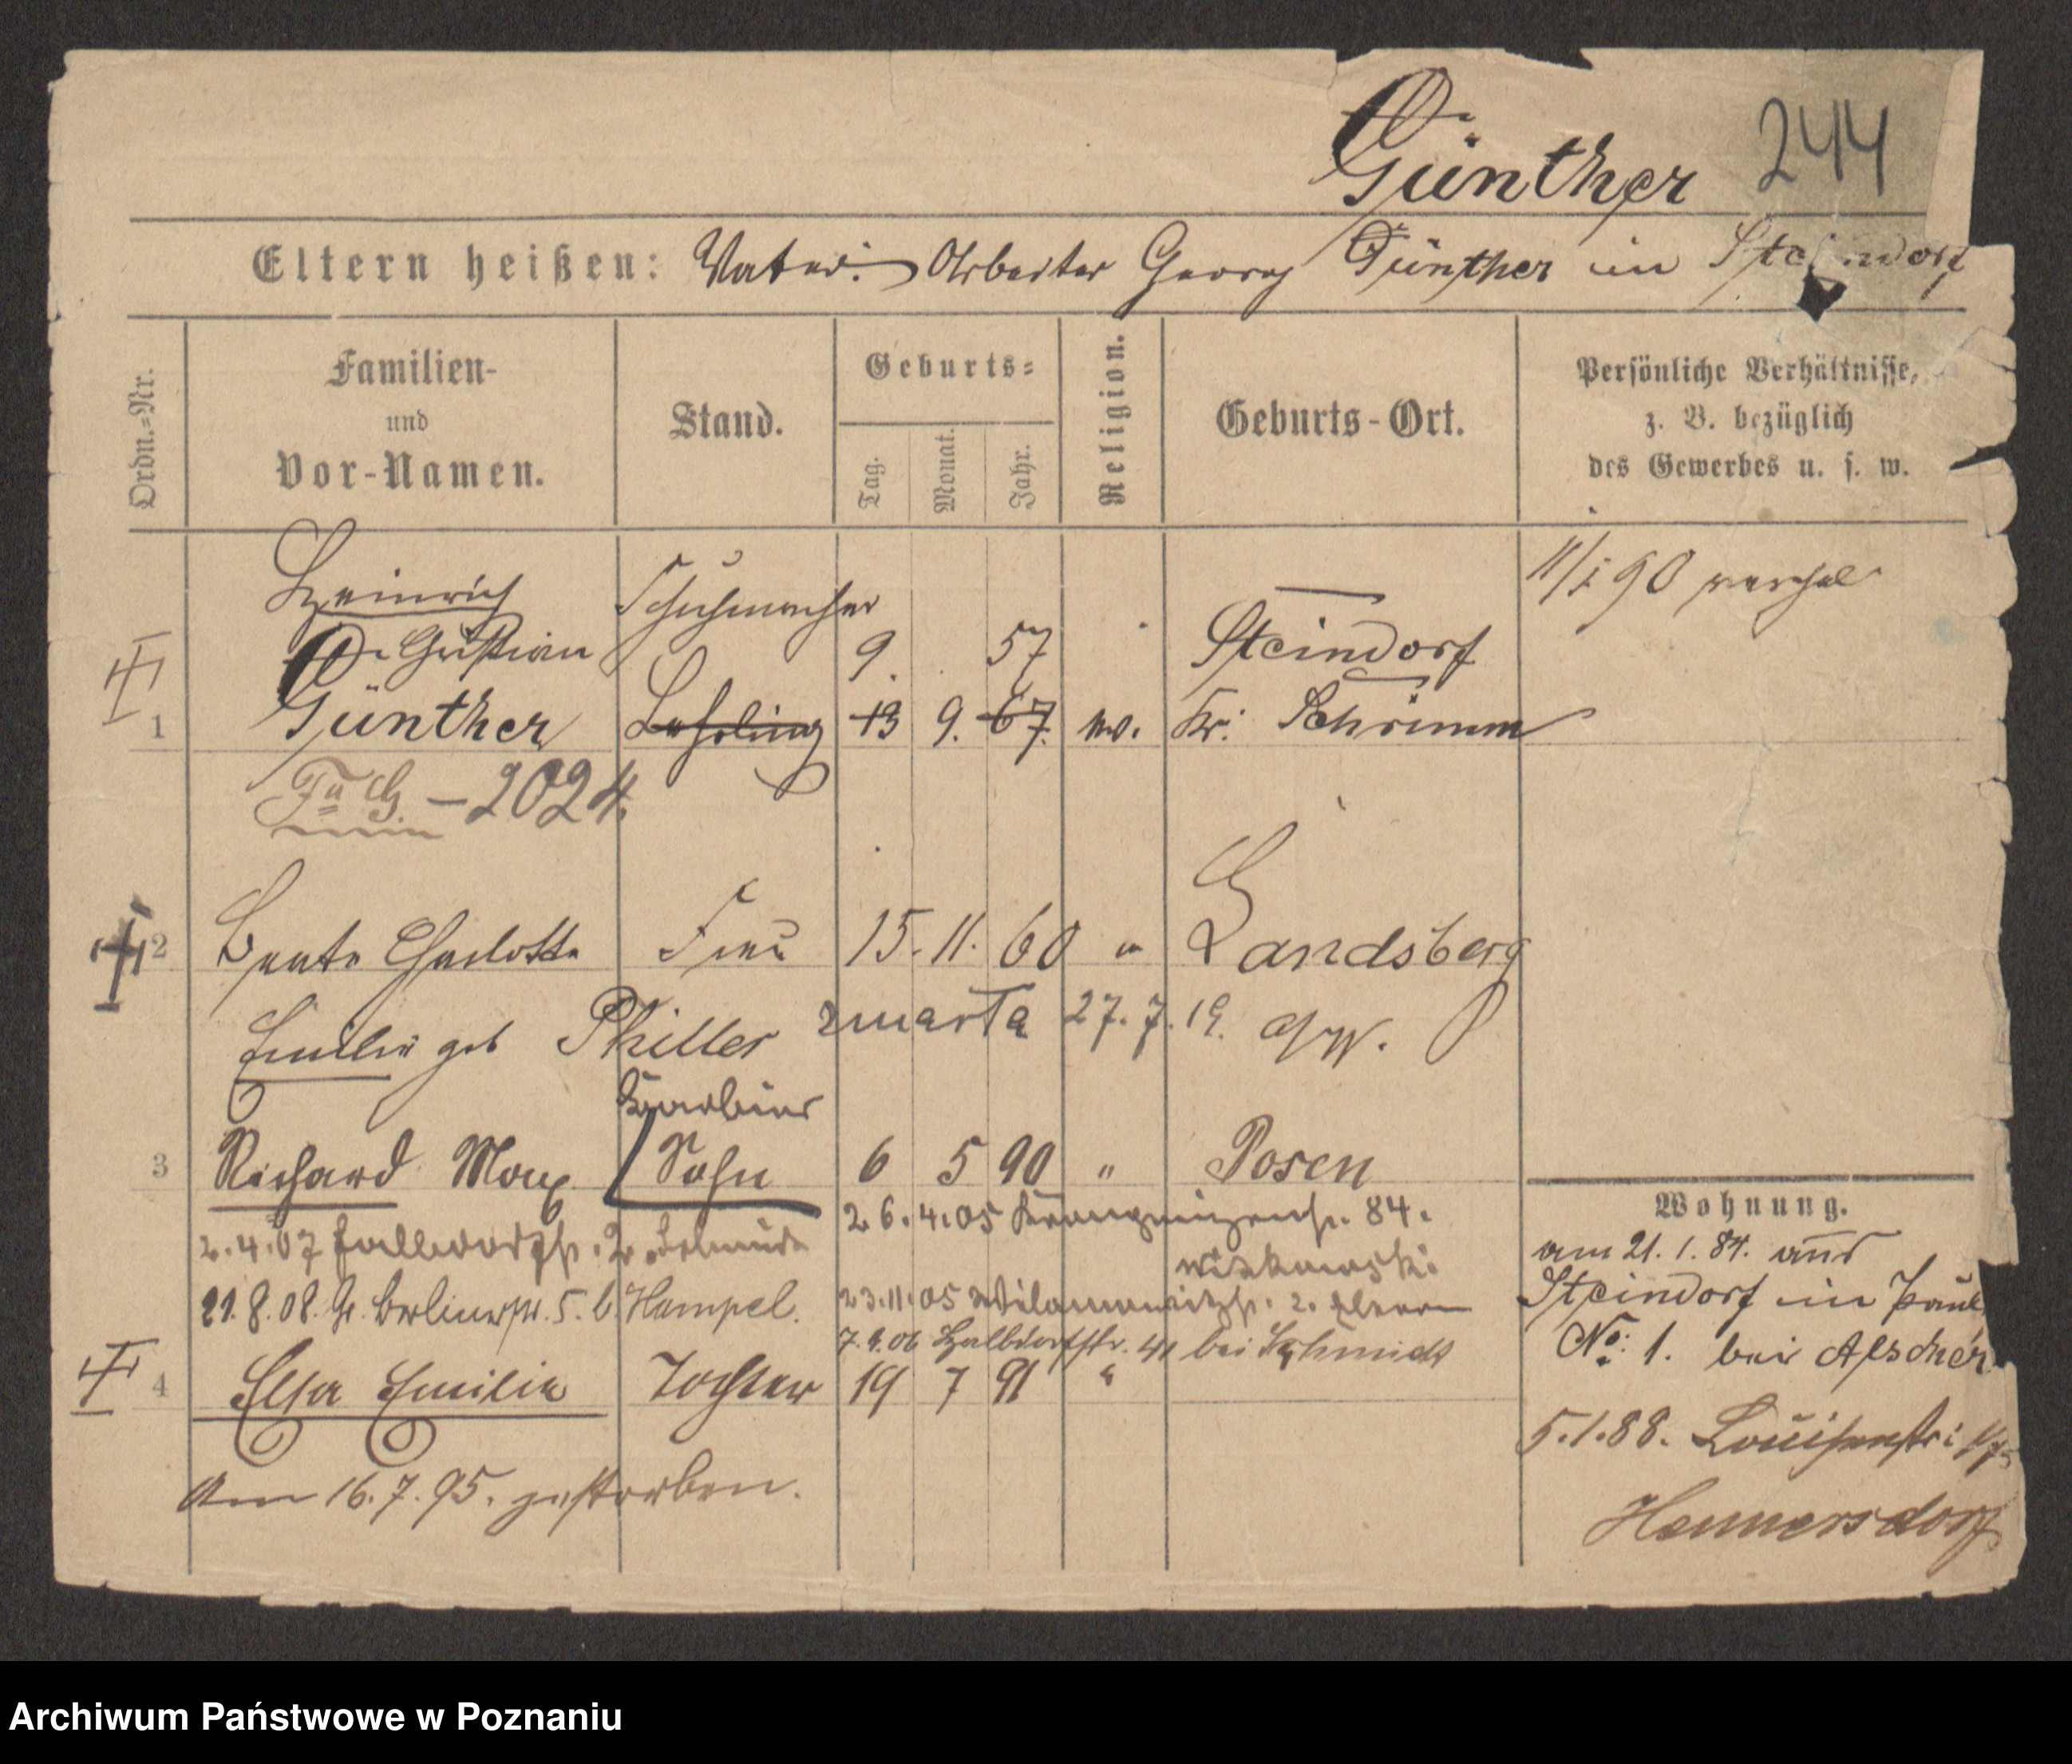 Günther 244
Eltern heißen: Vater: Arbeiter Georg Günther in Steindorf
Ordn.-Nr.
Familien-
und
Vor-Namen.
Stand.
Geburts-
Tag.
Monat.
Jahr.
Religion.
Geburts-Ort.
Persönliche Verhältnisse,
z. B. bezüglich
des Gewerbes u. s. w.
11/1 90
Heinrich Schuhmacher
Christian 9. 57 Steindorf
1 Günther Lehrling 13 9. 67. ev. Kr: Schrimm
- 2024.
2 Beate Charlotte Frau 15. 11. 60 " Landsberg
Emilie geb Philler 27. 7. 19. a/W.
Barbier
3 Richard Max Sohn 6 5 90 " Posen
26. 4. 05 84.
2. 4. 07
21. 8. 08. Gr. Berlinerstr. 5. b. Hampel.
23. 11. 05
7. 9. 06 Halbdorfstr. 41 bei Schmidt
4 Elsa Emilie Tochter 19 7 91 "
Am 16. 7. 95. gestorben.
Wohnung.
am 21. 1. 84. aus
Steindorf in
No: 1. bei
5. 1. 88. Louisenstr:
Hennersdorf
Archiwum Państwowe w Poznaniu